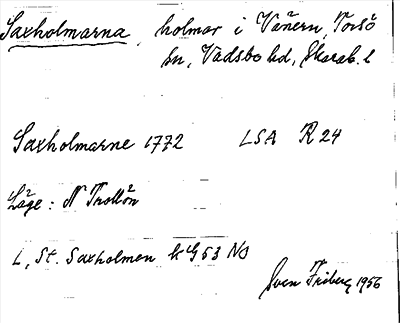 Saxholmarna, holmar i Vänern, Torsö
sn, Vadsbo hd, Skarab. l
Saxholmarne 1772 LSA R 24
Läge: N Trollön
L, St. Saxholmen k G 53 NO
Sven Friberg 1956